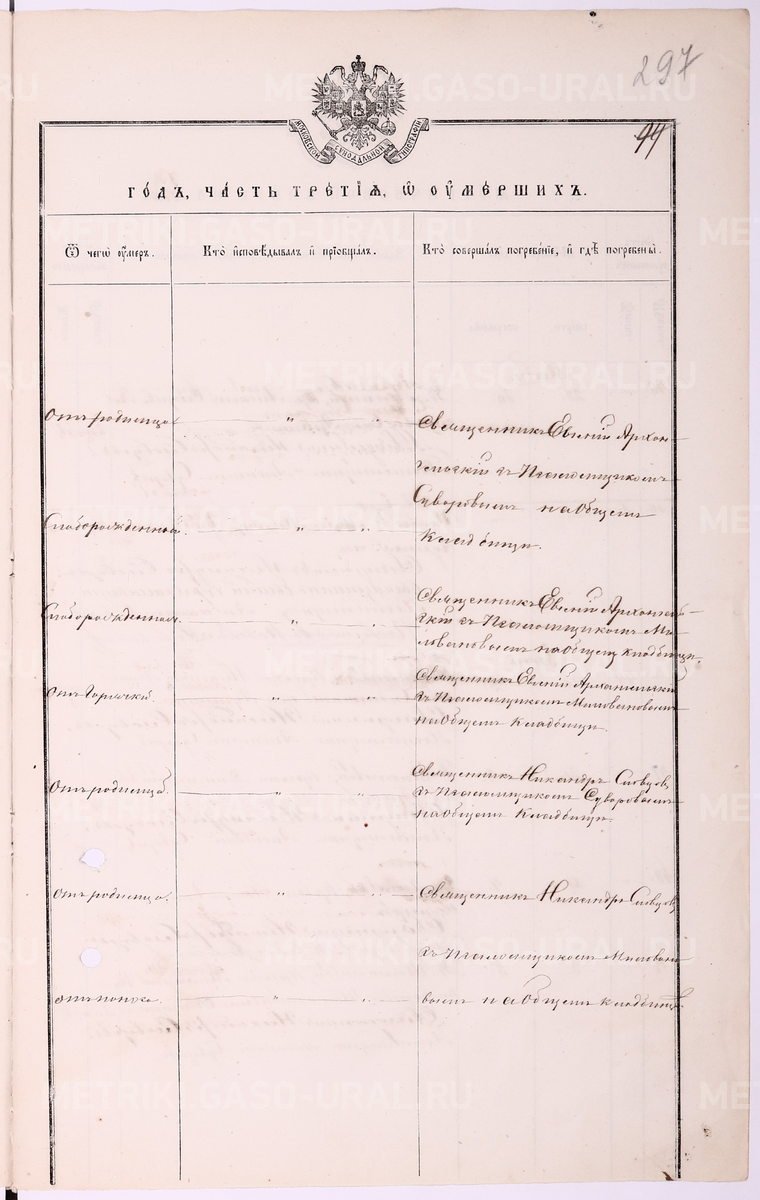 297
44
МОСКОВСКОЙ СѴНОДАЛЬНОЙ ТИПОГРАФІИ
ГО́ДЪ, ЧА́СТЬ ТРЕ́ТІѦ, Ѽ ОУ҆МЕ́РШИХЪ.
Ѿ чегѡ̀ оу҆́меръ.
Кто̀ и҆сповѣ́дывалъ и҆ прїѡбща́лъ.
Кто̀ соверша́лъ погребе́нїе, и҆ гдѣ̀ погребены̀.
Отъ родимца
" "
Священникъ Евгеній Архан-
гельскій съ Псаломщикомъ
Суворовымъ на общемъ
кладбищѣ.
Слаборожденной.
" "
Слаборожденной.
" "
Священникъ Евгеній Архангель-
скій съ Псаломщикомъ Ми-
ловановымъ на общемъ кладбищѣ.
Отъ горячки.
" "
Священникъ Евгеній Архангельскій
съ Псаломщикомъ Миловановымъ
на общемъ кладбищѣ.
Отъ родимца.
" "
Священникъ Никандръ Словцов
съ Псаломщикомъ Суворовымъ
на общемъ кладбищѣ.
Отъ родимца.
" "
Священникъ Никандръ Словцов
съ Псаломщикомъ Миловано-
вымъ на общемъ кладбищѣ.
отъ поноса.
" "
METRIKI.GASO-URAL.RU